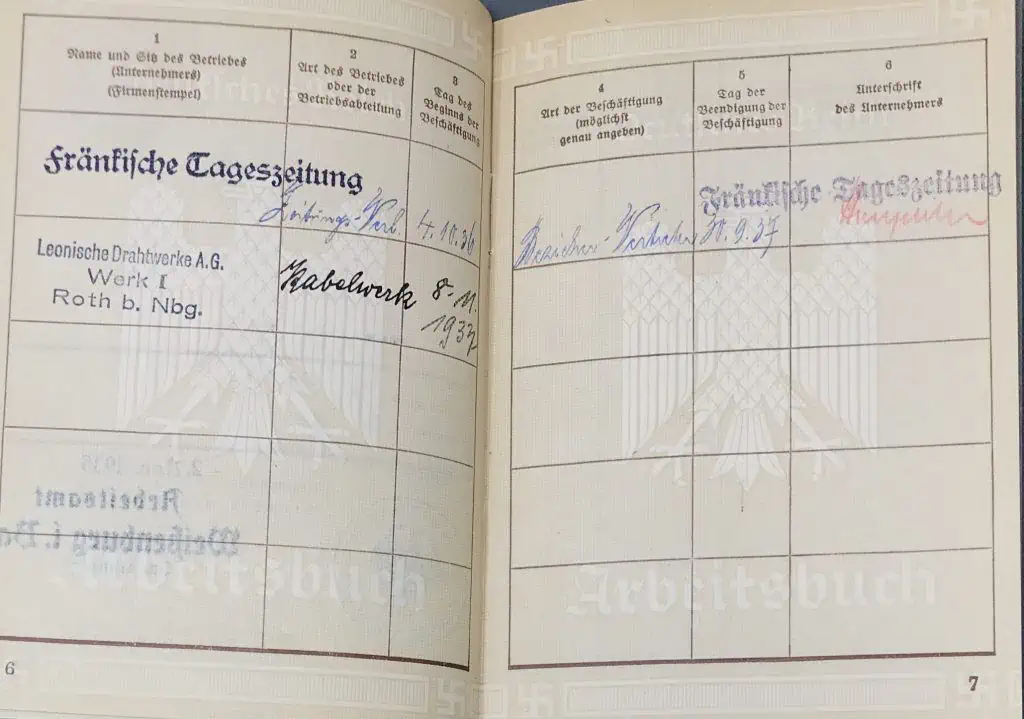 1
Name und Sitz des Betriebes
(Unternehmers)
(Firmenstempel)
2
Art des Betriebes
oder der
Betriebsabteilung
3
Tag des
Beginns der
Beschäftigung
Fränkische Tageszeitung
Zeitungs-Verl.
4.10.36
Leonische Drahtwerke A.G.
Werk I
Roth b. Nbg.
Kabelwerk
8.-11.
1937
2. Nov. 1936
Arbeitsamt
Weißenburg i. Ba
Arbeitsbuch
6
4
Art der Beschäftigung
(möglichst
genau angeben)
5
Tag der
Beendigung der
Beschäftigung
6
Unterschrift
des Unternehmers
Fränkische Tageszeitung
30.9.37
Arbeitsbuch
7